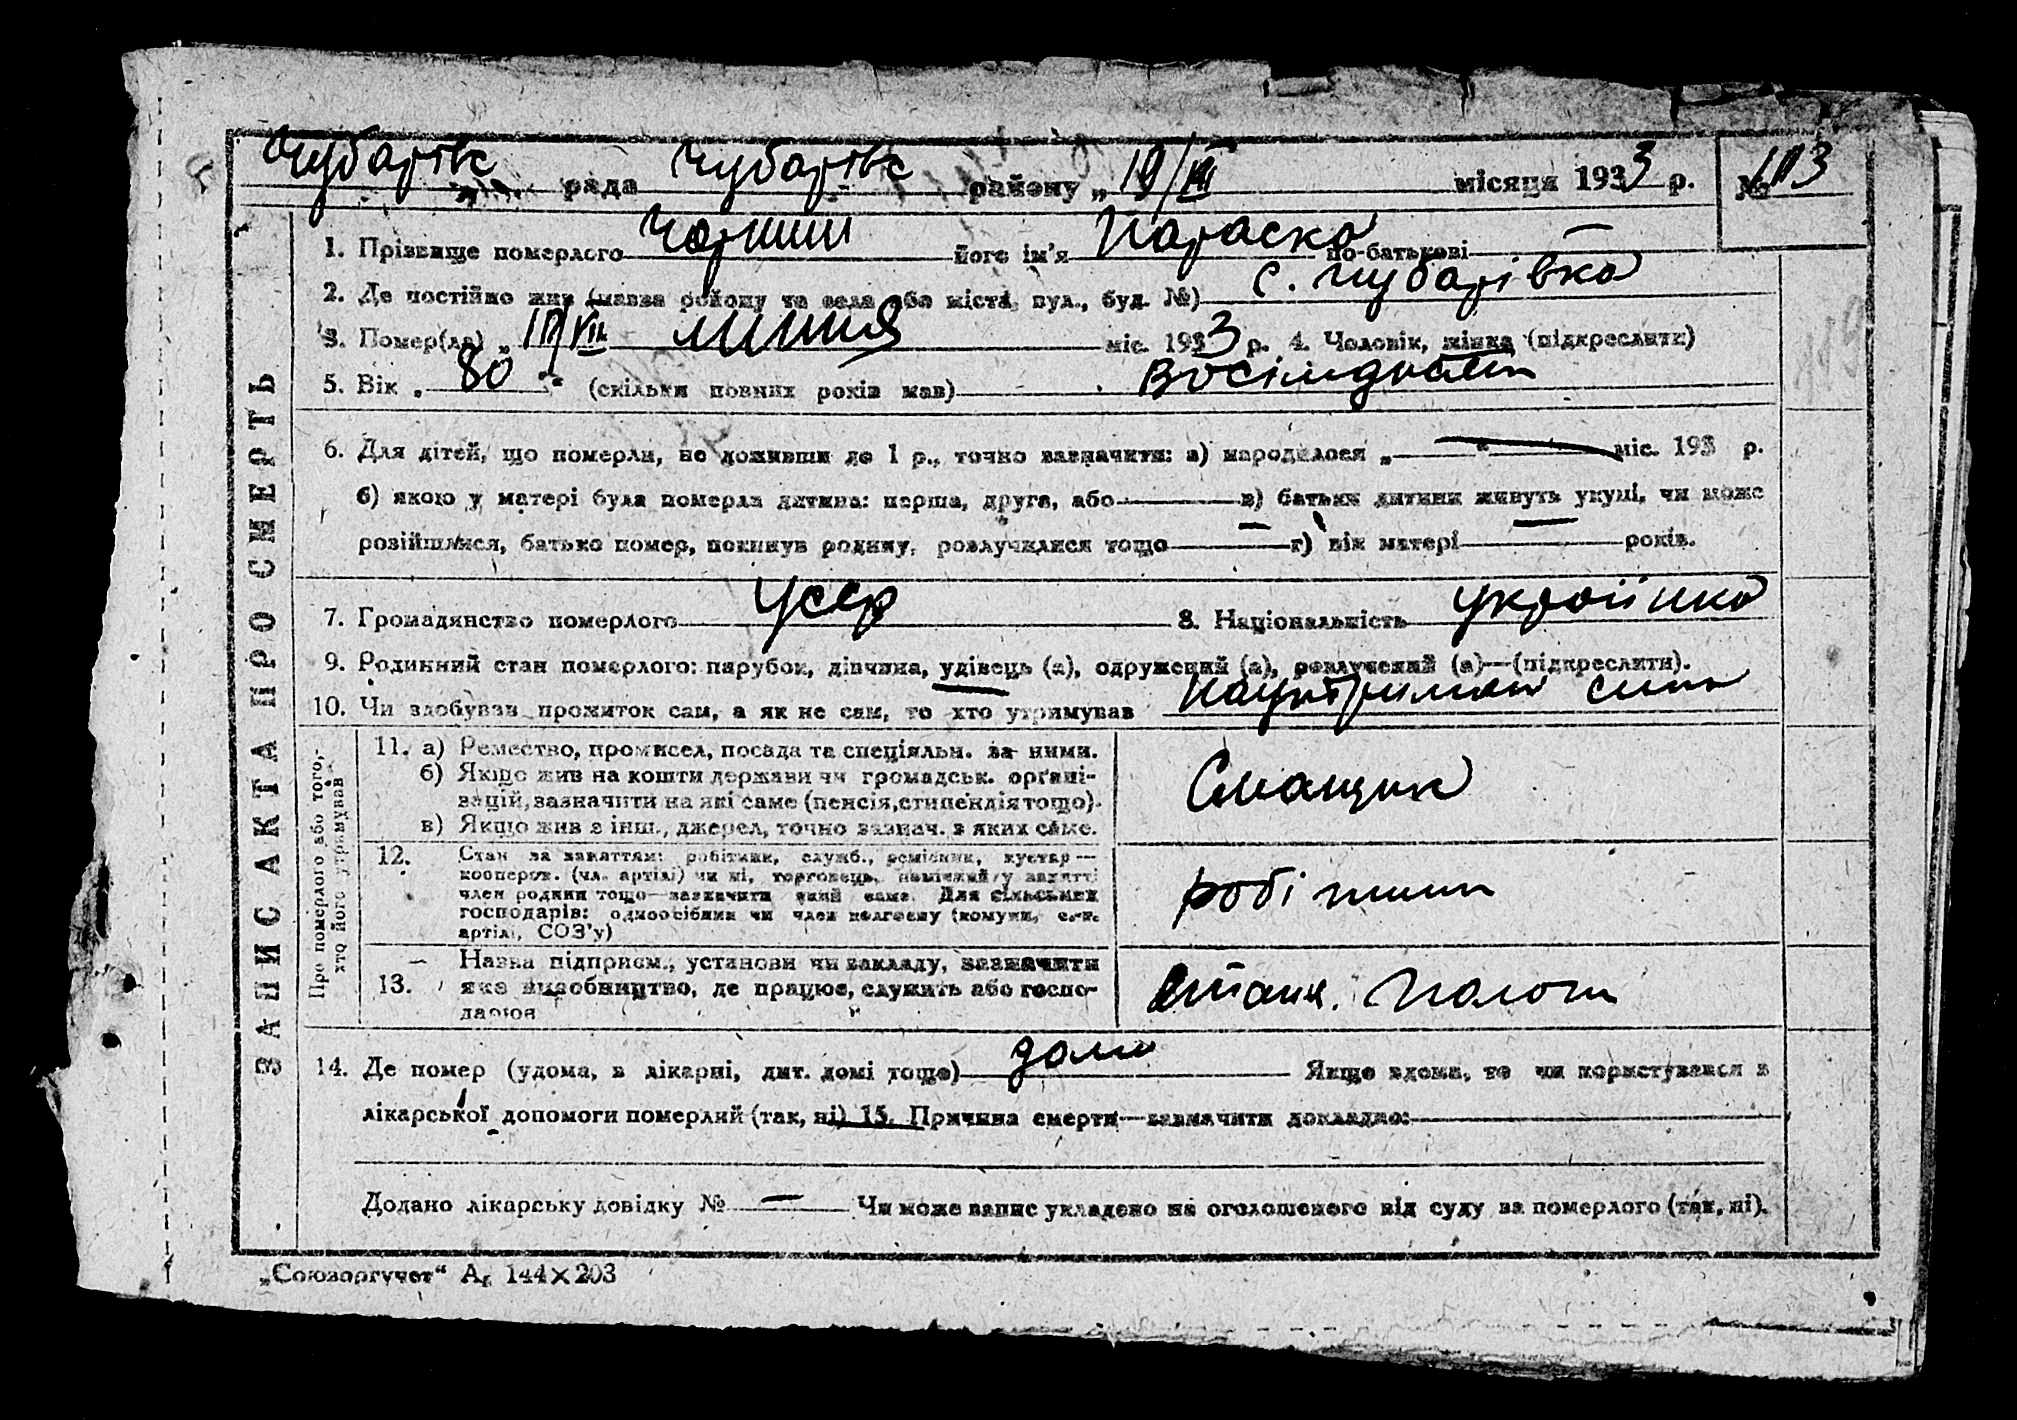 Чубарівс рада Чубарівс району „ 10/VII місяця 1933 р. № 103
1. Прізвище померлого його ім'я Параска по-батькові —
2. Де постійно жив (назва району та села або міста, вул., буд. №) с. Чубарівка
3. Помер(ла) „ 10/VII липня міс. 1933 р. 4. Чоловік, жінка (підкреслити)
5. Вік „ 80 “ (скільки повних років мав) Восімдесят
6. Для дітей, що померли, не доживши до 1 р., точно зазначити: а) народилося „ — “ міс. 193 р.
б) якою у матері була померла дитина: перша, друга, або — в) батьки дитини живуть укупі, чи може
розійшлися, батько помер, покинув родину, розлучилися тощо — г) вік матері — років.
7. Громадянство померлого УССР 8. Національність українка
9. Родинний стан померлого: парубок, дівчина, удівець (а), одружений (а), розлучений (а)—(підкреслити).
10. Чи здобував прожиток сам, а як не сам, то хто утримував син
ЗАПИС АКТА ПРО СМЕРТЬ
Про померлого або того,
хто його утримував
11. а) Ремество, промисел, посада та спеціяльн. за ними.
б) Якщо жив на кошти держави чи громадськ. органі-
зацій, зазначити на які саме (пенсія, стипендія тощо).
в) Якщо жив з інш., джерел, точно зазнач. з яких саме.
Смащик
12. Стан за заняттям: робітник, служб., ремісник, кустар —
кооперов. (чл. артілі) чи ні, торговець, помічний у занятті
член родини тощо—зазначити який саме. Для сільських
господарів: одноосібник чи член колгоспу (комуни, с.-г.
артілі, СОЗ'у)
робітник
13. Назва підприєм., установи чи закладу, зазначити
яке виробництво, де працює, служить або госпо-
дарює
Станц. Пологи
14. Де помер (удома, в лікарні, дит. домі тощо) дома Якщо вдома, то чи користувався з
лікарської допомоги померлий (так, ні) 15. Причина смерти—зазначити докладно:
Додано лікарську довідку № — Чи може запис укладено на оголошеного від суду за померлого (так, ні).
„Союзоргучет“ А₅ 144×203